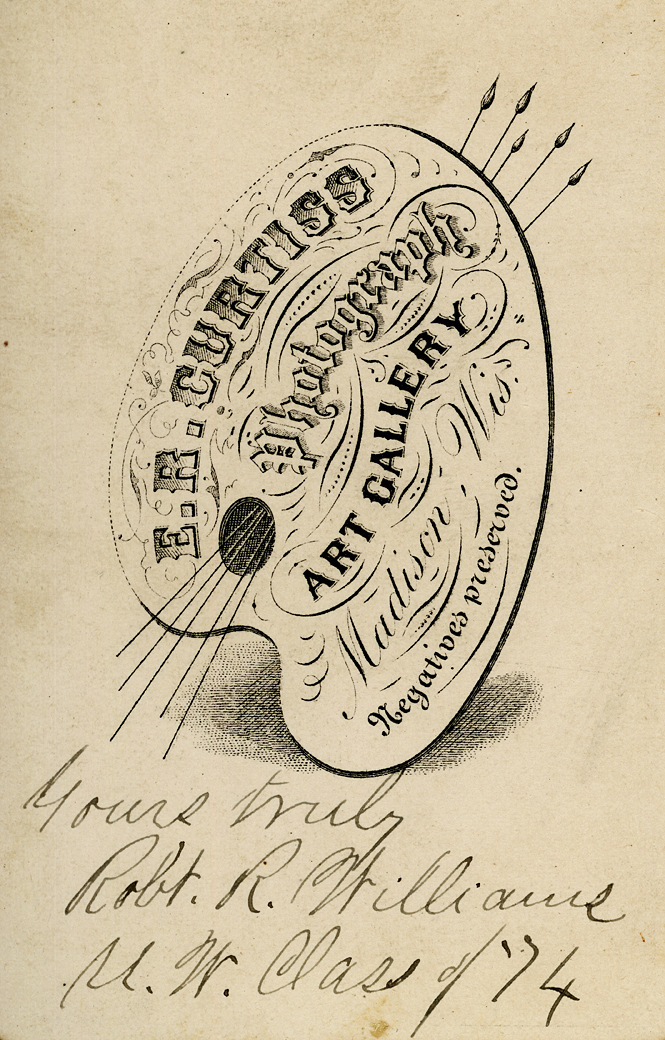 E.R. CURTISS
Photograph
ART GALLERY
Madison, Wis.
Negatives preserved.
Yours truly
Robt. R. Williams
U. W. Class of '74